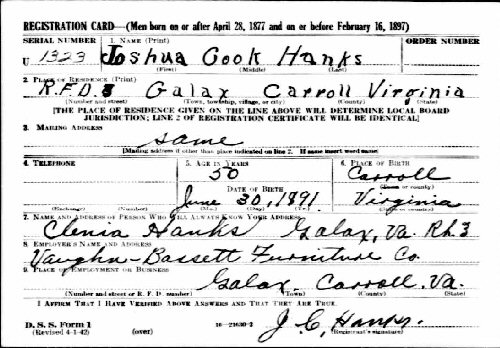 REGISTRATION CARD—(Men born on or after April 28, 1877 and on or before February 16, 1897)
SERIAL NUMBER 1. NAME (Print) ORDER NUMBER
U 1323 Joshua Cook Hanks
(First) (Middle) (Last)
2. PLACE OF RESIDENCE (Print)
R.F.D. 3 Galax Carroll Virginia
(Number and street) (Town, township, village, or city) (County) (State)
[THE PLACE OF RESIDENCE GIVEN ON THE LINE ABOVE WILL DETERMINE LOCAL BOARD
JURISDICTION; LINE 2 OF REGISTRATION CERTIFICATE WILL BE IDENTICAL]
3. MAILING ADDRESS
same
[Mailing address if other than place indicated on line 2. If same insert word same]
4. TELEPHONE 5. AGE IN YEARS 6. PLACE OF BIRTH
50 Carroll
DATE OF BIRTH (Town or county)
June 30, 1891 Virginia
(Exchange) (Number) (Mo.) (Day) (Yr.) (State or country)
7. NAME AND ADDRESS OF PERSON WHO WILL ALWAYS KNOW YOUR ADDRESS
Clenia Hanks Galax, Va. Rt. 3
8. EMPLOYER'S NAME AND ADDRESS
Vaughn-Bassett Furniture Co.
9. PLACE OF EMPLOYMENT OR BUSINESS
Galax. Carroll, Va.
(Number and street or R. F. D. number) (Town) (County) (State)
I AFFIRM THAT I HAVE VERIFIED ABOVE ANSWERS AND THAT THEY ARE TRUE.
J. C. Hanks.
D. S. S. Form 1 16—21630-2 (Registrant's signature)
(Revised 4-1-42) (over)